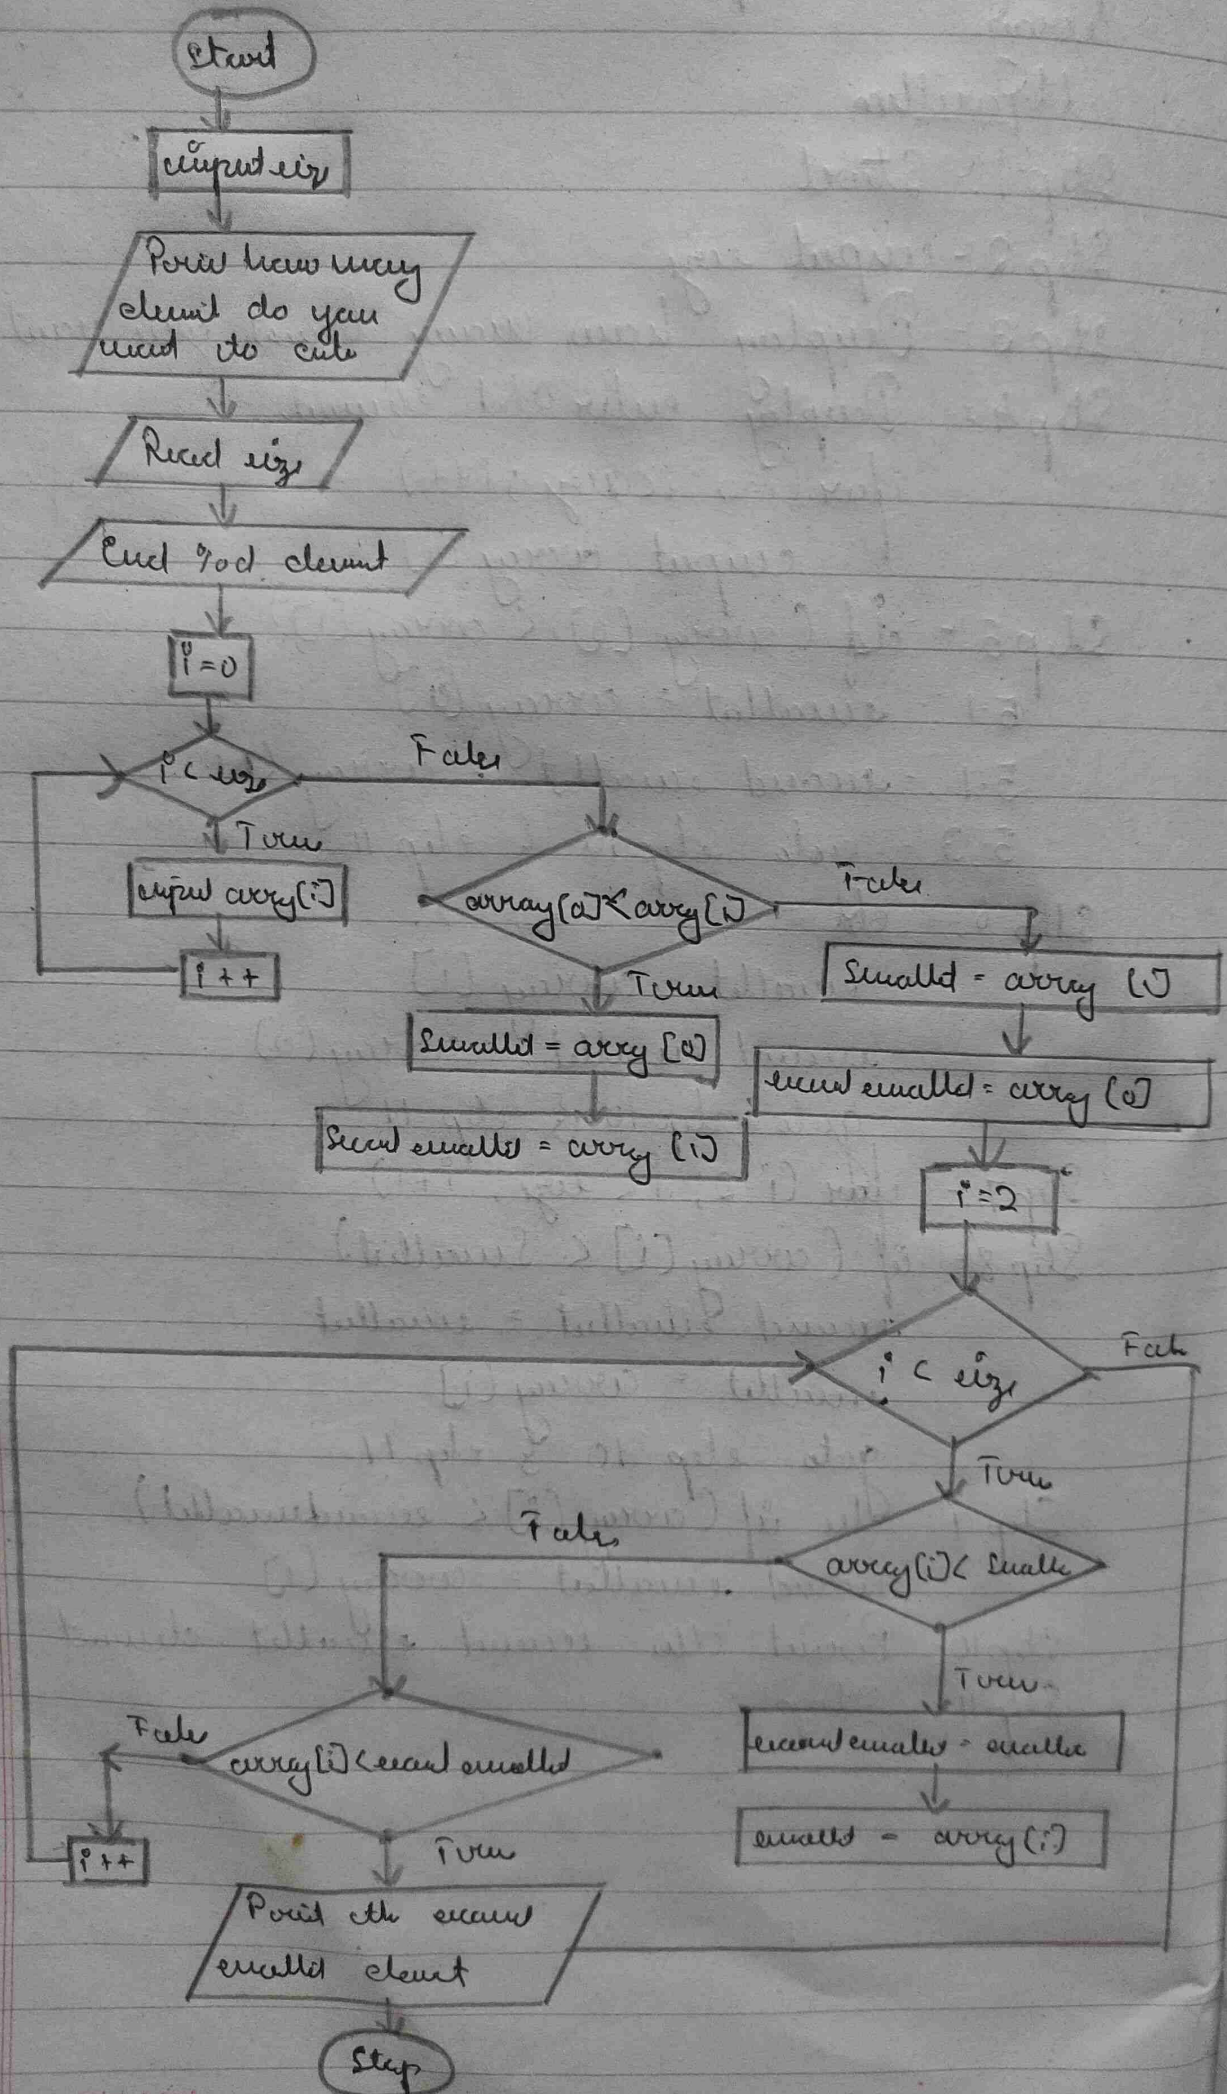 Start
input size
Print how many
element do you
want to enter
Read size
Enter %d element
i=0
i < size
False
True
input array[i]
i++
array[0]<array[1]
False
True
Smallest = array [1]
Smallest = array [0]
second smallest = array [0]
Second smallest = array [1]
i=2
i < size
False
True
array[i]< Smalle
False
True
array[i]<second smallest
False
second smallest = smallest
smallest = array[i]
True
i++
Print the second
smallest element
Stop